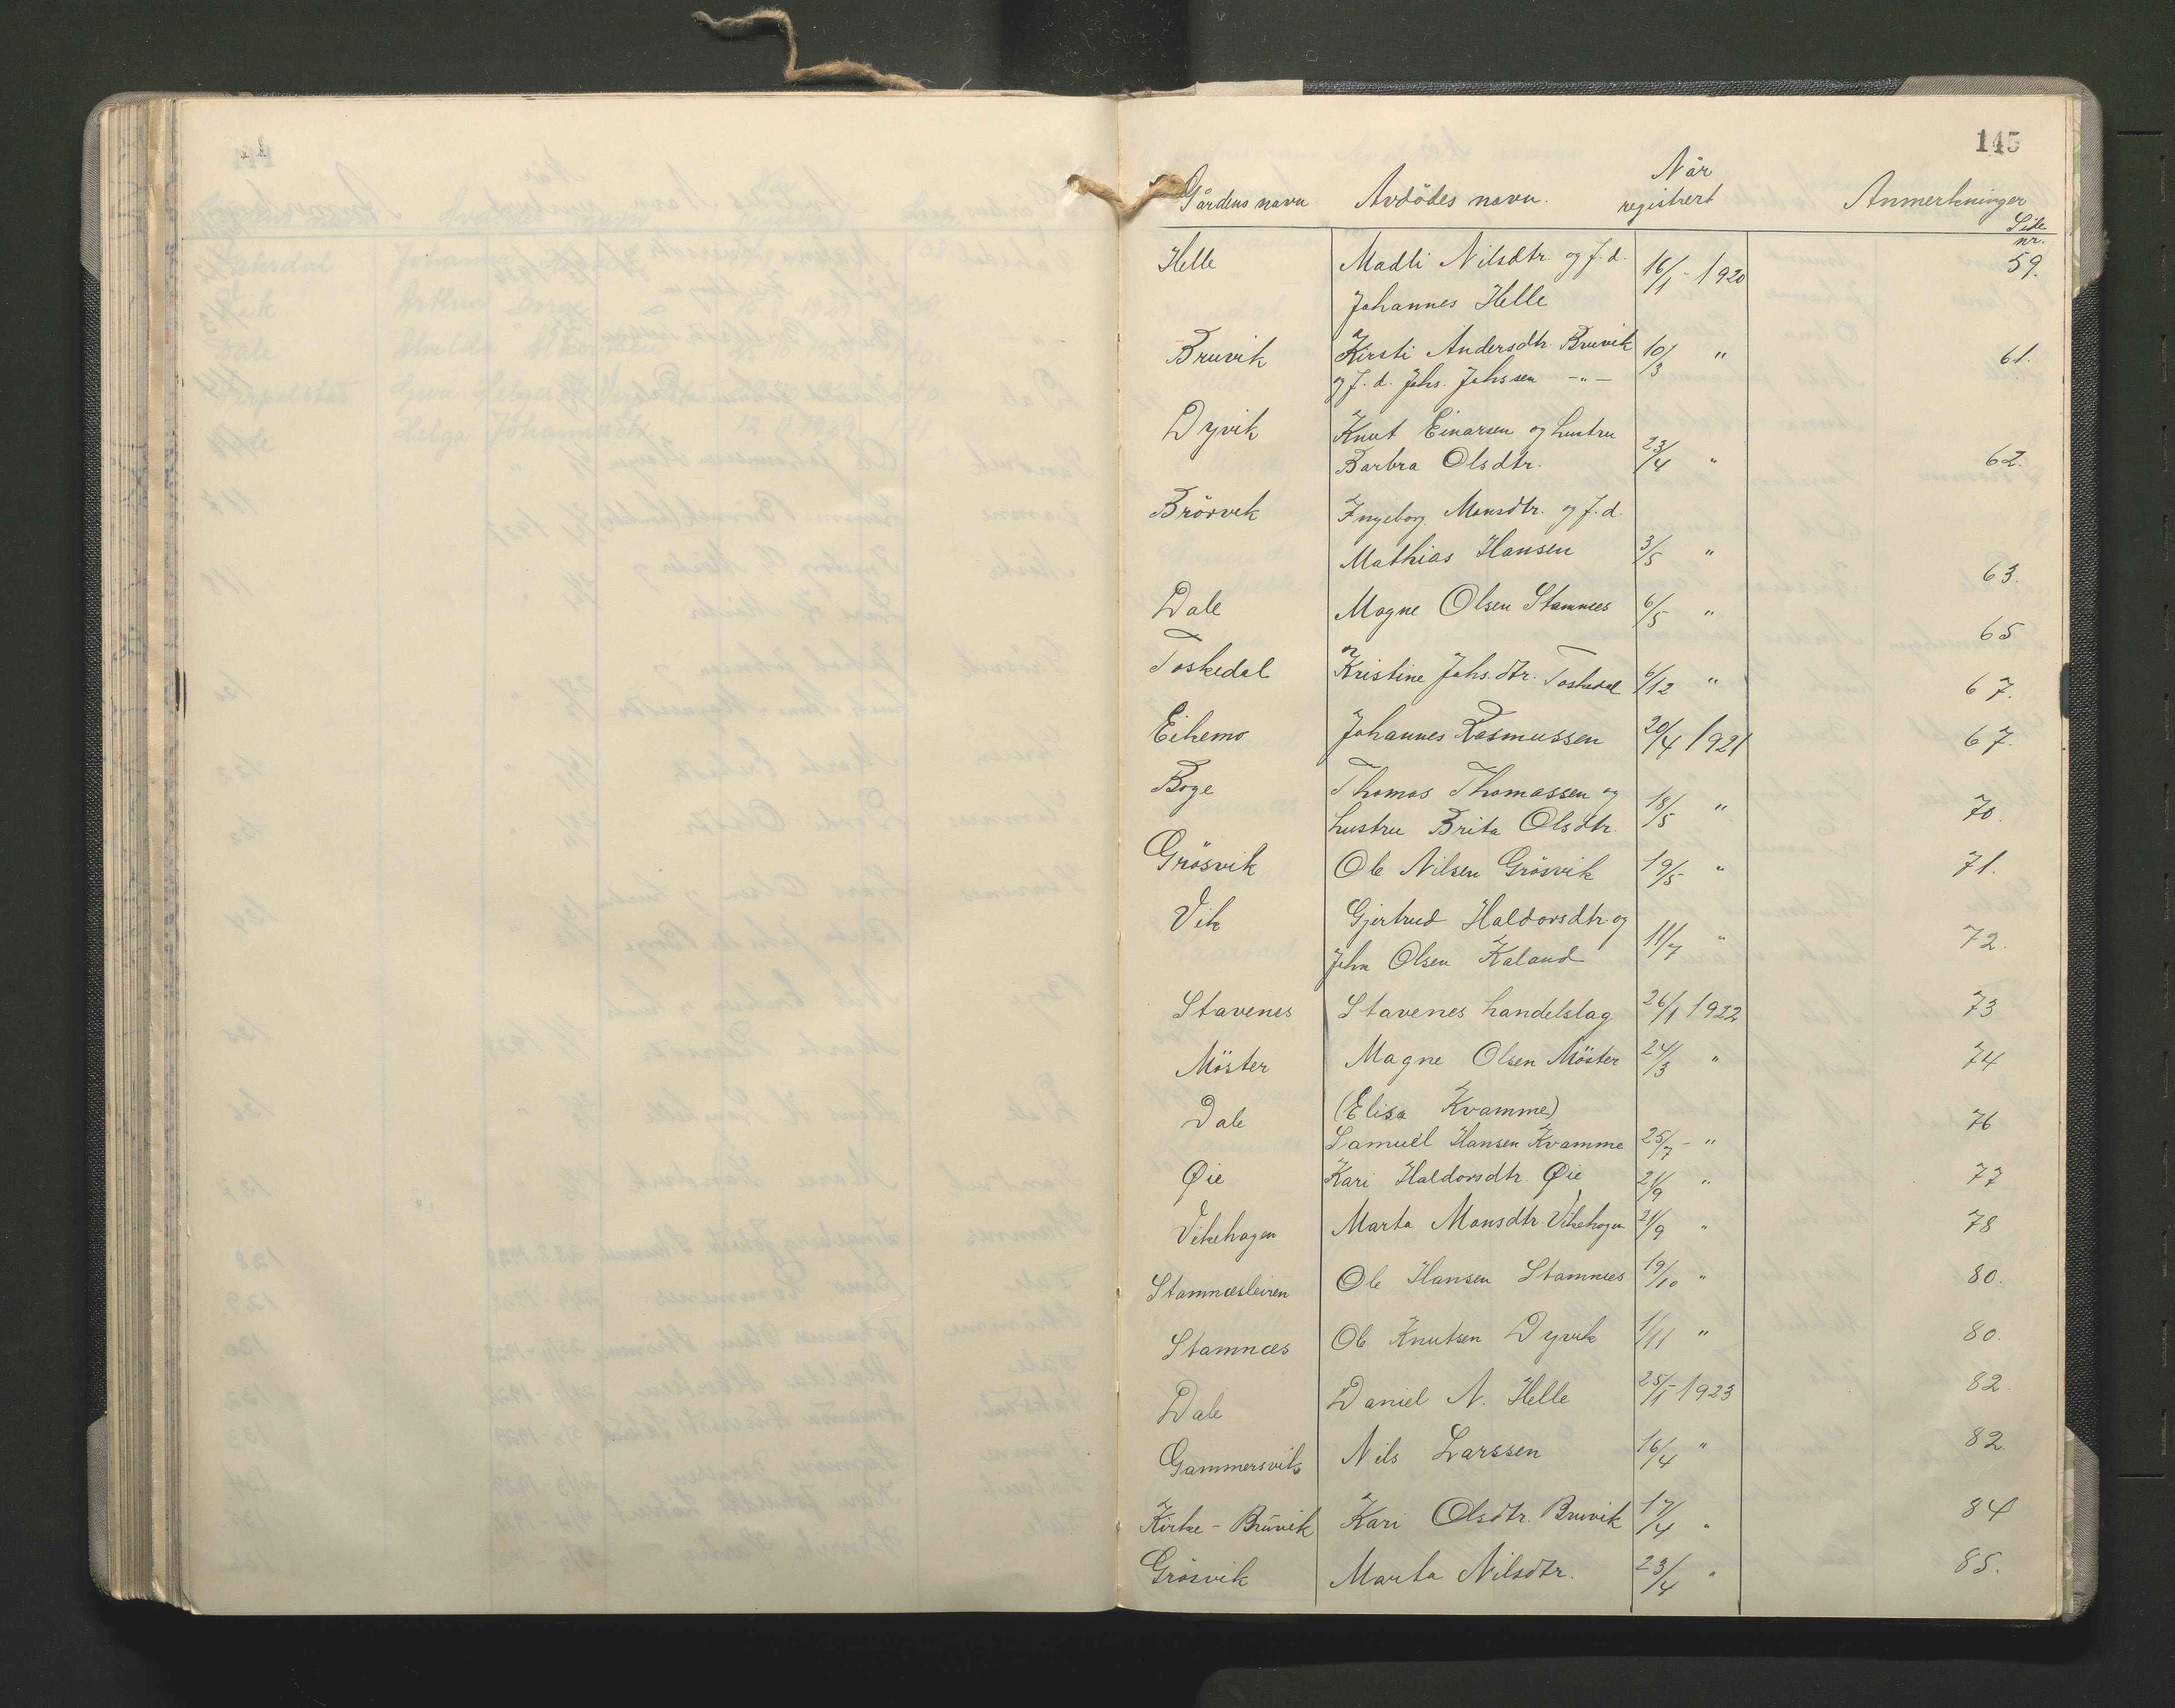 145
Gårdens navn Avdödes navn. Når registrert Anmerkninger
Side nr.
Helle Madli Nilsdtr. og f. d. 16/1 - 1920 59.
Johannes Helle
Bruvik Kirsti Andersdtr. Bruvik 10/3 " 61.
og f. d. Johs. Johssen - " -
Dyvik Knut Einarsen og hustru
Barbra Olsdtr. 23/4 " 62.
Brörvik Ingeborg Monsdtr. og f. d.
Mathias Hansen 3/5 " 63.
Dale Magne Olsen Stamnes 6/5 " 65
Toskedal Kristine Johs.dtr. Toskedal 6/12 " 67.
Eikemo Johannes Rasmussen 20/4 1921 67.
Boge Thomas Thomassen og 18/5 " 70.
hustru Brita Olsdtr.
Grösvik Ole Nilsen Grösvik 19/5 " 71.
Vik Gjertrud Haldorsdtr. og 11/7 " 72.
John Olsen Kaland
Stavenes Stavenes handelslag 26/1 1922 73
Möster Magne Olsen Möster 24/3 " 74
Dale (Elisa Kvamme) 76
Samuel Hansen Kvamme 25/7 - "
Øie Kari Haldorsdtr. Øie 21/9 " 77
Vikehagen Marta Monsdtr. Vikehagen 21/9 " 78
Stamnesleiren Ole Hansen Stamnes 19/10 " 80.
Stamnæs Ole Knutsen Dyvik 1/11 " 80.
Dale Daniel N. Helle 25/1 - 1923 82.
Gammersvik Nils Larssen 16/4 " 82.
Kirke - Bruvik Kari Olsdtr. Bruvik 17/4 " 84
Grösvik Marta Nilsdtr. 23/4 " 85.